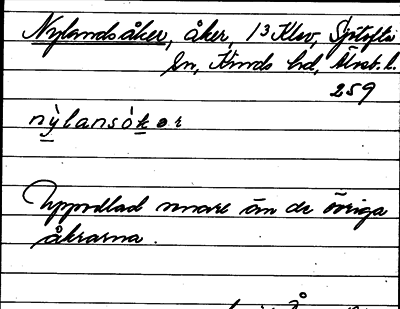 Nylandsåker, åker, 13 Klev, Sjötofta
sn, Kinds hd, Älvsb. l.
259
nỳlansòkər
Uppodlad senare än de övriga
åkrarna.